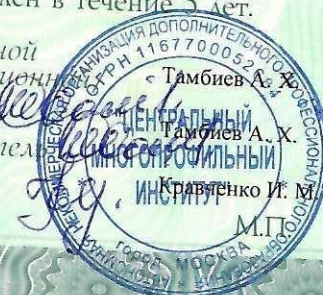 ен в течение 5 лет.
ной
ционной
Тамбиев А. Х.
Тамбиев А. Х.
Кравченко И. М.
М.П.
НЕКОММЕРЧЕСКАЯ ОРГАНИЗАЦИЯ ДОПОЛНИТЕЛЬНОГО ПРОФЕССИОНАЛЬНОГО
ОГРН
ЦЕНТРАЛЬНЫЙ
МНОГОПРОФИЛЬНЫЙ
ИНСТИТУТ
ГОРОД МОСКВА